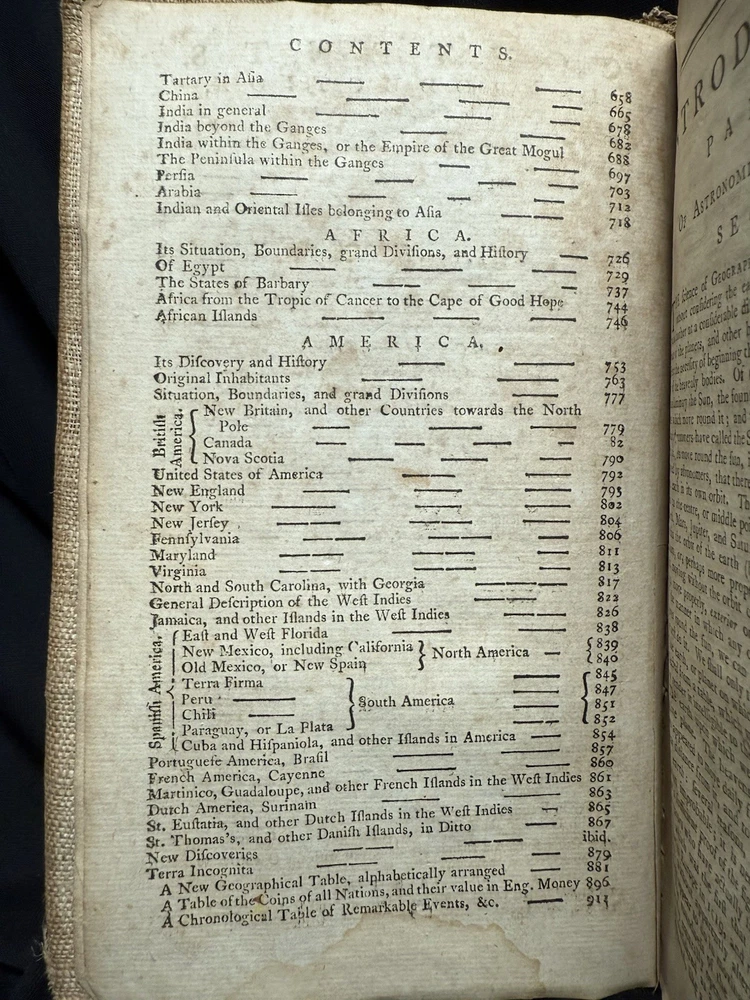 CONTENTS.
Tartary in Aſia — — — 658
China — — — — 665
India in general — — — 678
India beyond the Ganges — — 682
India within the Ganges, or the Empire of the Great Mogul 688
The Peninſula within the Ganges — — 697
Perſia — — — — 703
Arabia — — — — 712
Indian and Oriental Iſles belonging to Aſia — — 718
AFRICA.
Its Situation, Boundaries, grand Diviſions, and Hiſtory — 726
Of Egypt — — — 729
The States of Barbary — — — 737
Africa from the Tropic of Cancer to the Cape of Good Hope 744
African Iſlands — — — 746
AMERICA.
Its Diſcovery and Hiſtory — — — 753
Original Inhabitants — — — 763
Situation, Boundaries, and grand Diviſions — — 777
Britiſh America.
New Britain, and other Countries towards the North
Pole — — — 779
Canada — — — 82
Nova Scotia — — — 790
United States of America — — 792
New England — — — 795
New York — — — 802
New Jerſey — — — 804
Pennſylvania — — — 806
Maryland — — — 811
Virginia — — — 813
North and South Carolina, with Georgia — — 817
General Deſcription of the Weſt Indies — — 822
Jamaica, and other Iſlands in the Weſt Indies — — 826
Spaniſh America.
Eaſt and Weſt Florida — — 838
New Mexico, including California } North America — { 839
Old Mexico, or New Spain { 840
Terra Firma — 845
Peru — } South America — { 847
Chili — — 851
Paraguay, or La Plata — 852
Cuba and Hiſpaniola, and other Iſlands in America — 854
Portugueſe America, Braſil — — 857
French America, Cayenne — — 860
Martinico, Guadaloupe, and other French Iſlands in the Weſt Indies 861
Dutch America, Surinam — — 863
St. Euſtatia, and other Dutch Iſlands in the Weſt Indies — 865
St. Thomas's, and other Daniſh Iſlands, in Ditto — 867
New Diſcoveries — — — ibid.
Terra Incognita — — — 879
A New Geographical Table, alphabetically arranged — 881
A Table of the Coins of all Nations, and their value in Eng. Money 896
A Chronological Table of Remarkable Events, &c. — 913